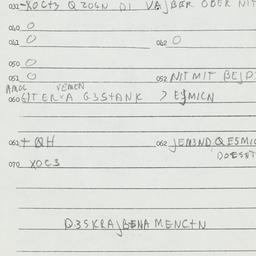 032 -XOC+3 QZOGN DI VAJBER ODER NIT
040 O
041 O 042 O
050 O
051 O 052 NIT MIT BEJD
AMOL VEMEN
060 GIT ER-A G3S+ANK > EJMICN
061 + QH 062 JEM3ND QESMIC
DOESNT
070 XOC3
D3SKRAJBENA MENC+N